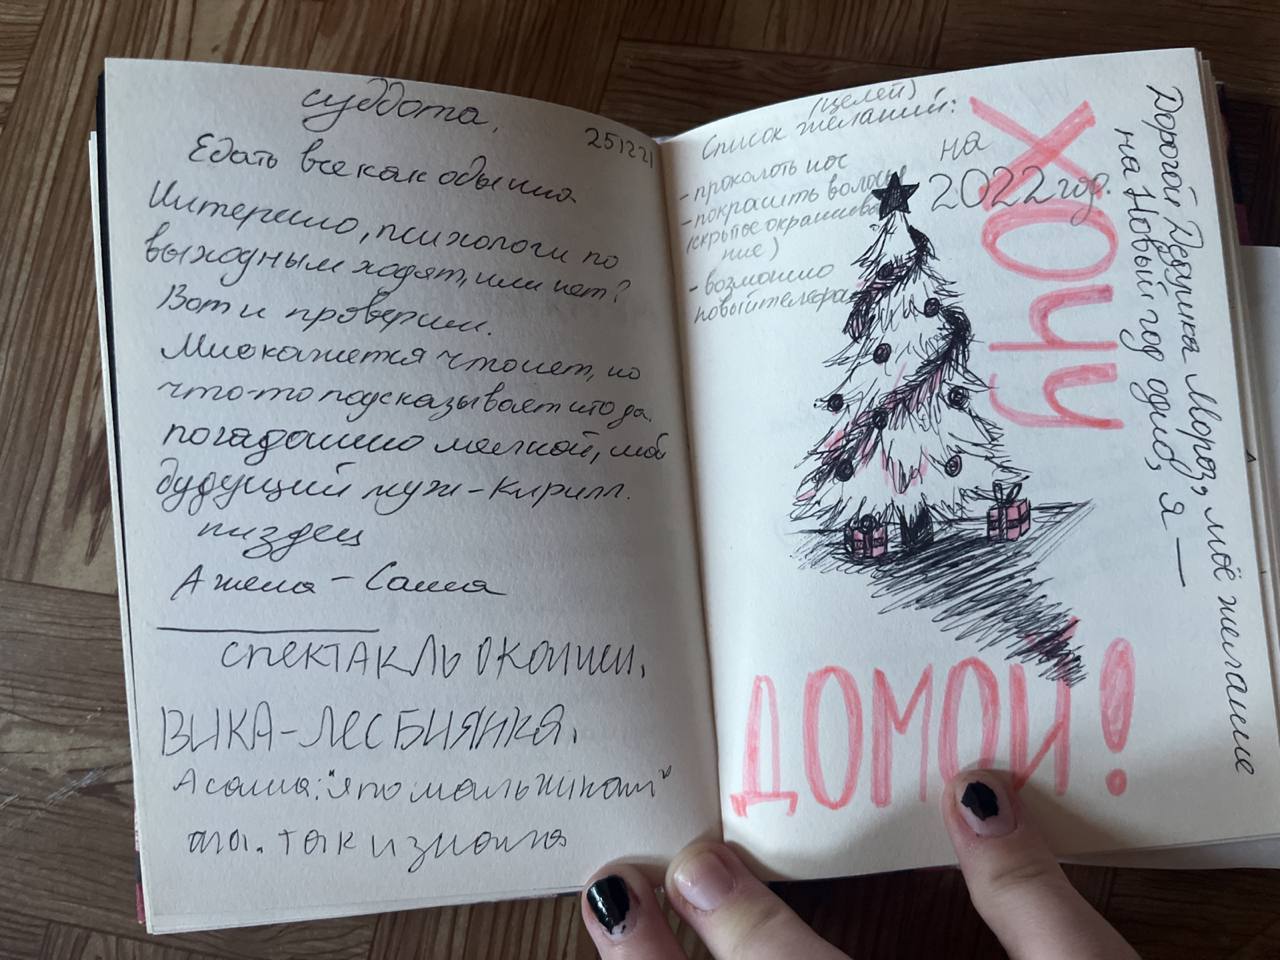 суббота.
25 12 21
Едать все как обычно
Интересно, психологи по
выходным ходят, или нет?
Вот и проверим.
Мне кажется что нет, но
что-то подсказывает что да.
погадано мелкой, мой
будущий муж - Кирилл.
пиздец
А жена - Саша
СПЕКТАКЛЬ ОКОНЧЕН.
ВИКА-ЛЕСБИЯНКА.
А саша: "я по мальчикам"
ага. так и знала
(целей)
Список желаний:
на
2022 год.
- проколоть нос
- покрасить волосы
(скрытое окрашива
ние)
- возможно
новый телефон
Дорогой Дедушка Мороз, моё желание
на Новый год одно, я —
ХОЧУ
ДОМОЙ!